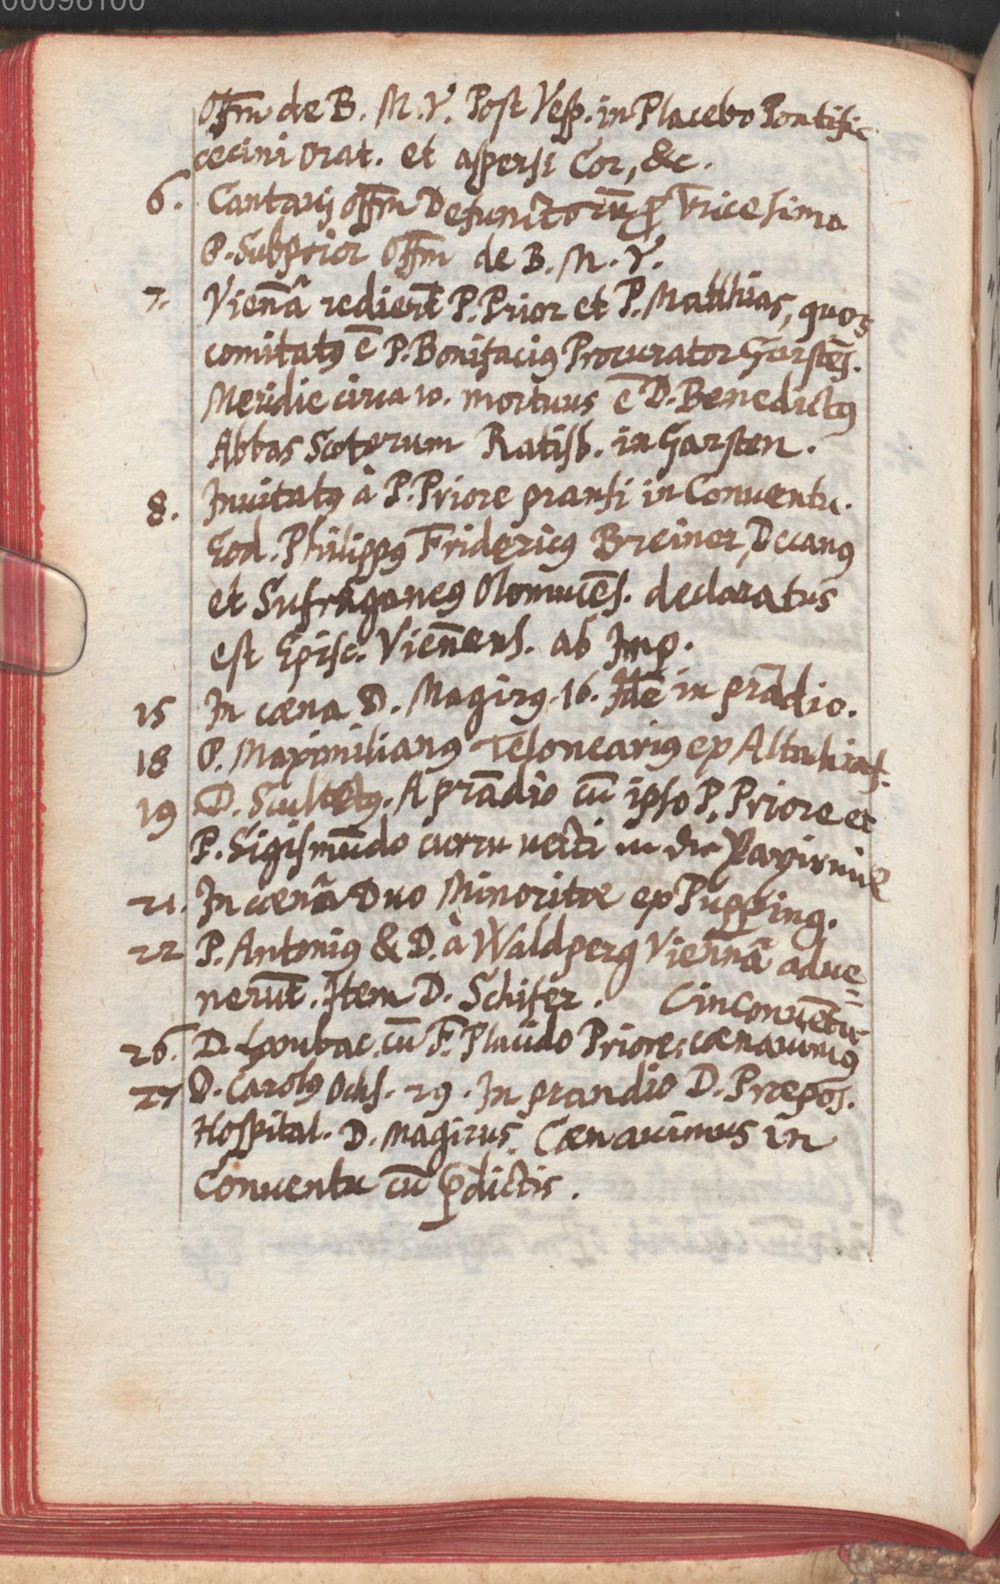 00096100
Offm de B. M. V. Post Vesp. in Placebo Pontific
cecini Orat. et aspersi Cor, &c.
6. Cantavj offm Defunctorū ꝓ Tricesima
P. Subprior Offm de B. M. V.
7. Vieñâ redierūt P. Prior et P. Matthias, quos
comitatꝰ ē P. Bonifaciꝰ Procurator Garstēs.
Meridie circa 10. mortuus ē D. Benedictꝰ
Abbas Scotorum Ratisb. in Garsten.
8. Inuitatꝰ à P. Priore pransi in Conuentu.
Eod. Philippꝰ Fridericꝰ Breiner, Decanꝰ
et Sufraganeꝰ Olomucēs. declaratus
est Episc. Vieñens. ab Imp.
15 In cæna D. Magirꝰ. 16. Idē in prādio.
18 P. Maximilianꝰ Telonearius ex
19 D. Scultetꝰ. A prādio cū ipso P. Priore et
P. Sigismūdo curru uecti in die Papirmül
21. In cænâ Duo Minoritæ ex Pupping.
22 P. Antonius & D. à Waldperg Vieñâ adue=
nerūt. Item D. Schifer. (in Conuētu
26. D. cū F. Placido Priore cænauimꝰ
27 D. Carolꝰ Ochs. 29. In prandio D. Præpos.
Hospital. D. Magirus. Cænauimus in
Conuentu cū p̄dictis.